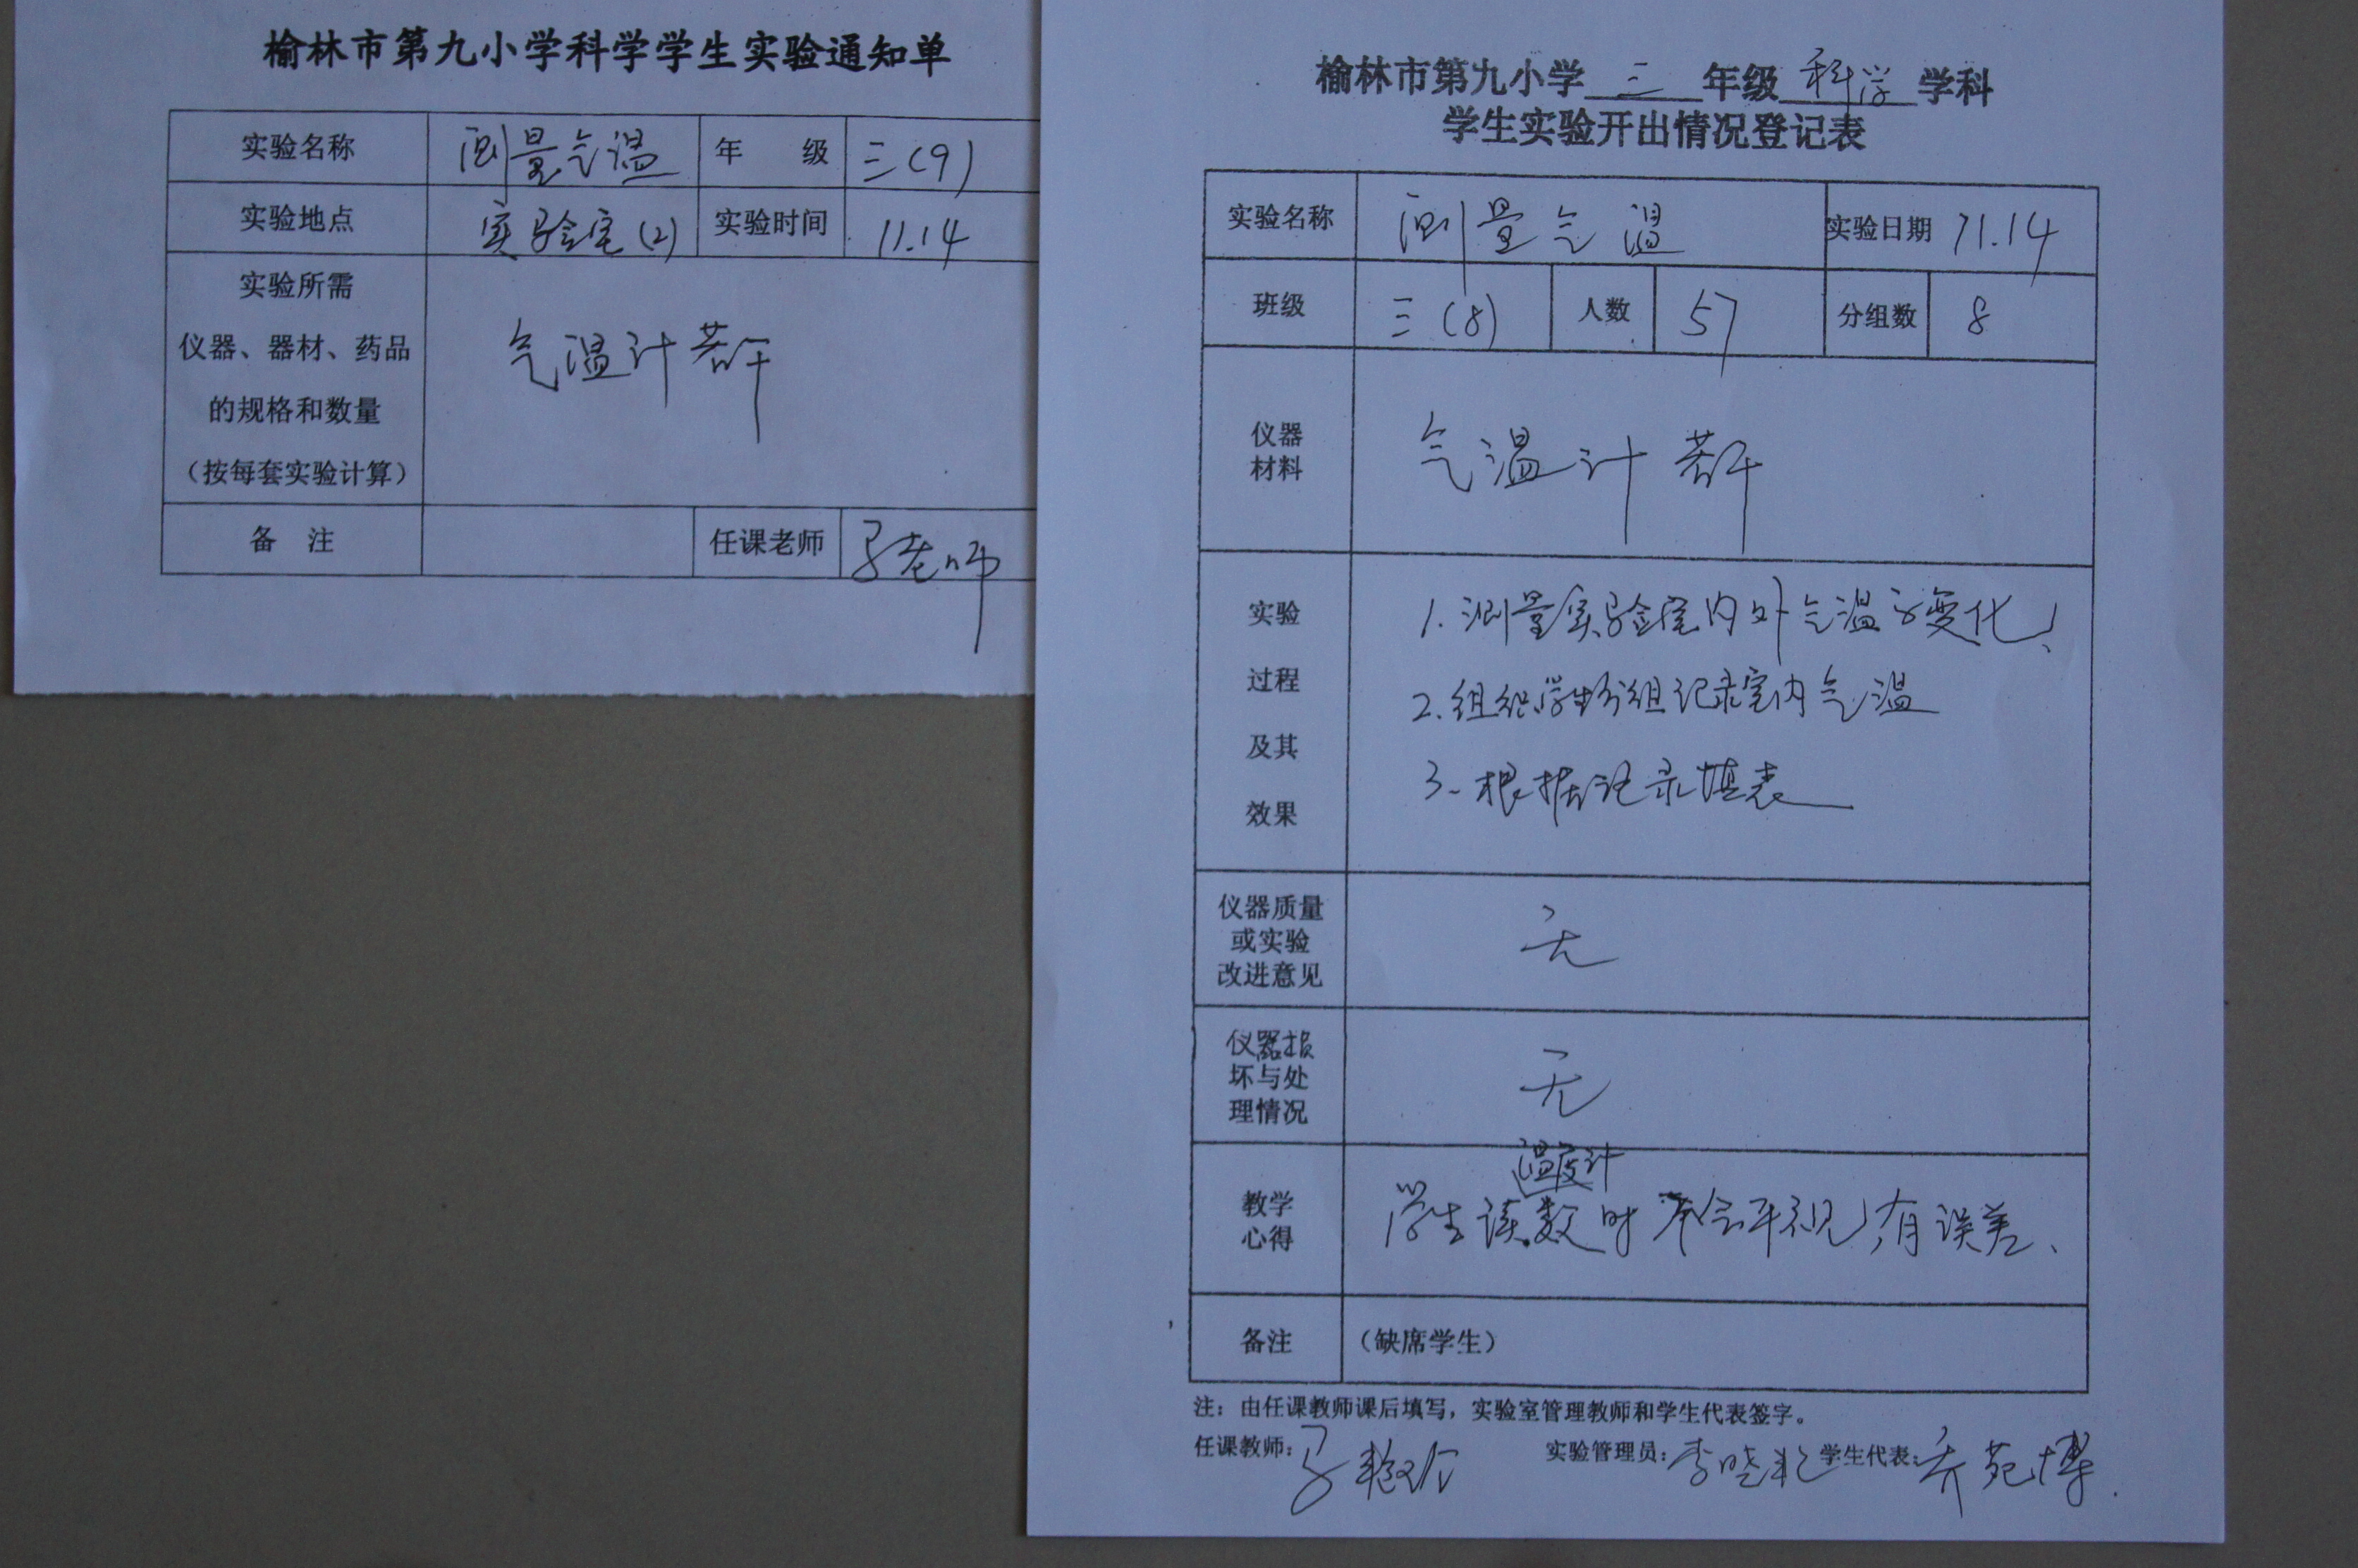 榆林市第九小学科学学生实验通知单
实验名称 测量气温 年 级 三(9)
实验地点 实验室(2) 实验时间 11.14
实验所需
仪器、器材、药品
的规格和数量
(按每套实验计算)
气温计若干
备 注 任课老师 马老师
榆林市第九小学 三 年级 科学 学科
学生实验开出情况登记表
实验名称 测量气温 实验日期 11.14
班级 三(8) 人数 57 分组数 8
仪器
材料
气温计若干
实验
过程
及其
效果
1.测量实验室内外气温的变化、
2.组织学生分组记录室内气温
3.根据记录填表
仪器质量
或实验
改进意见
无
仪器损
坏与处
理情况
无
教学
心得
温度计
学生读数时不会平视,有误差、
备注 (缺席学生)
注:由任课教师课后填写,实验室管理教师和学生代表签字。
任课教师: 马 实验管理员: 李晓 学生代表: 乔苑博